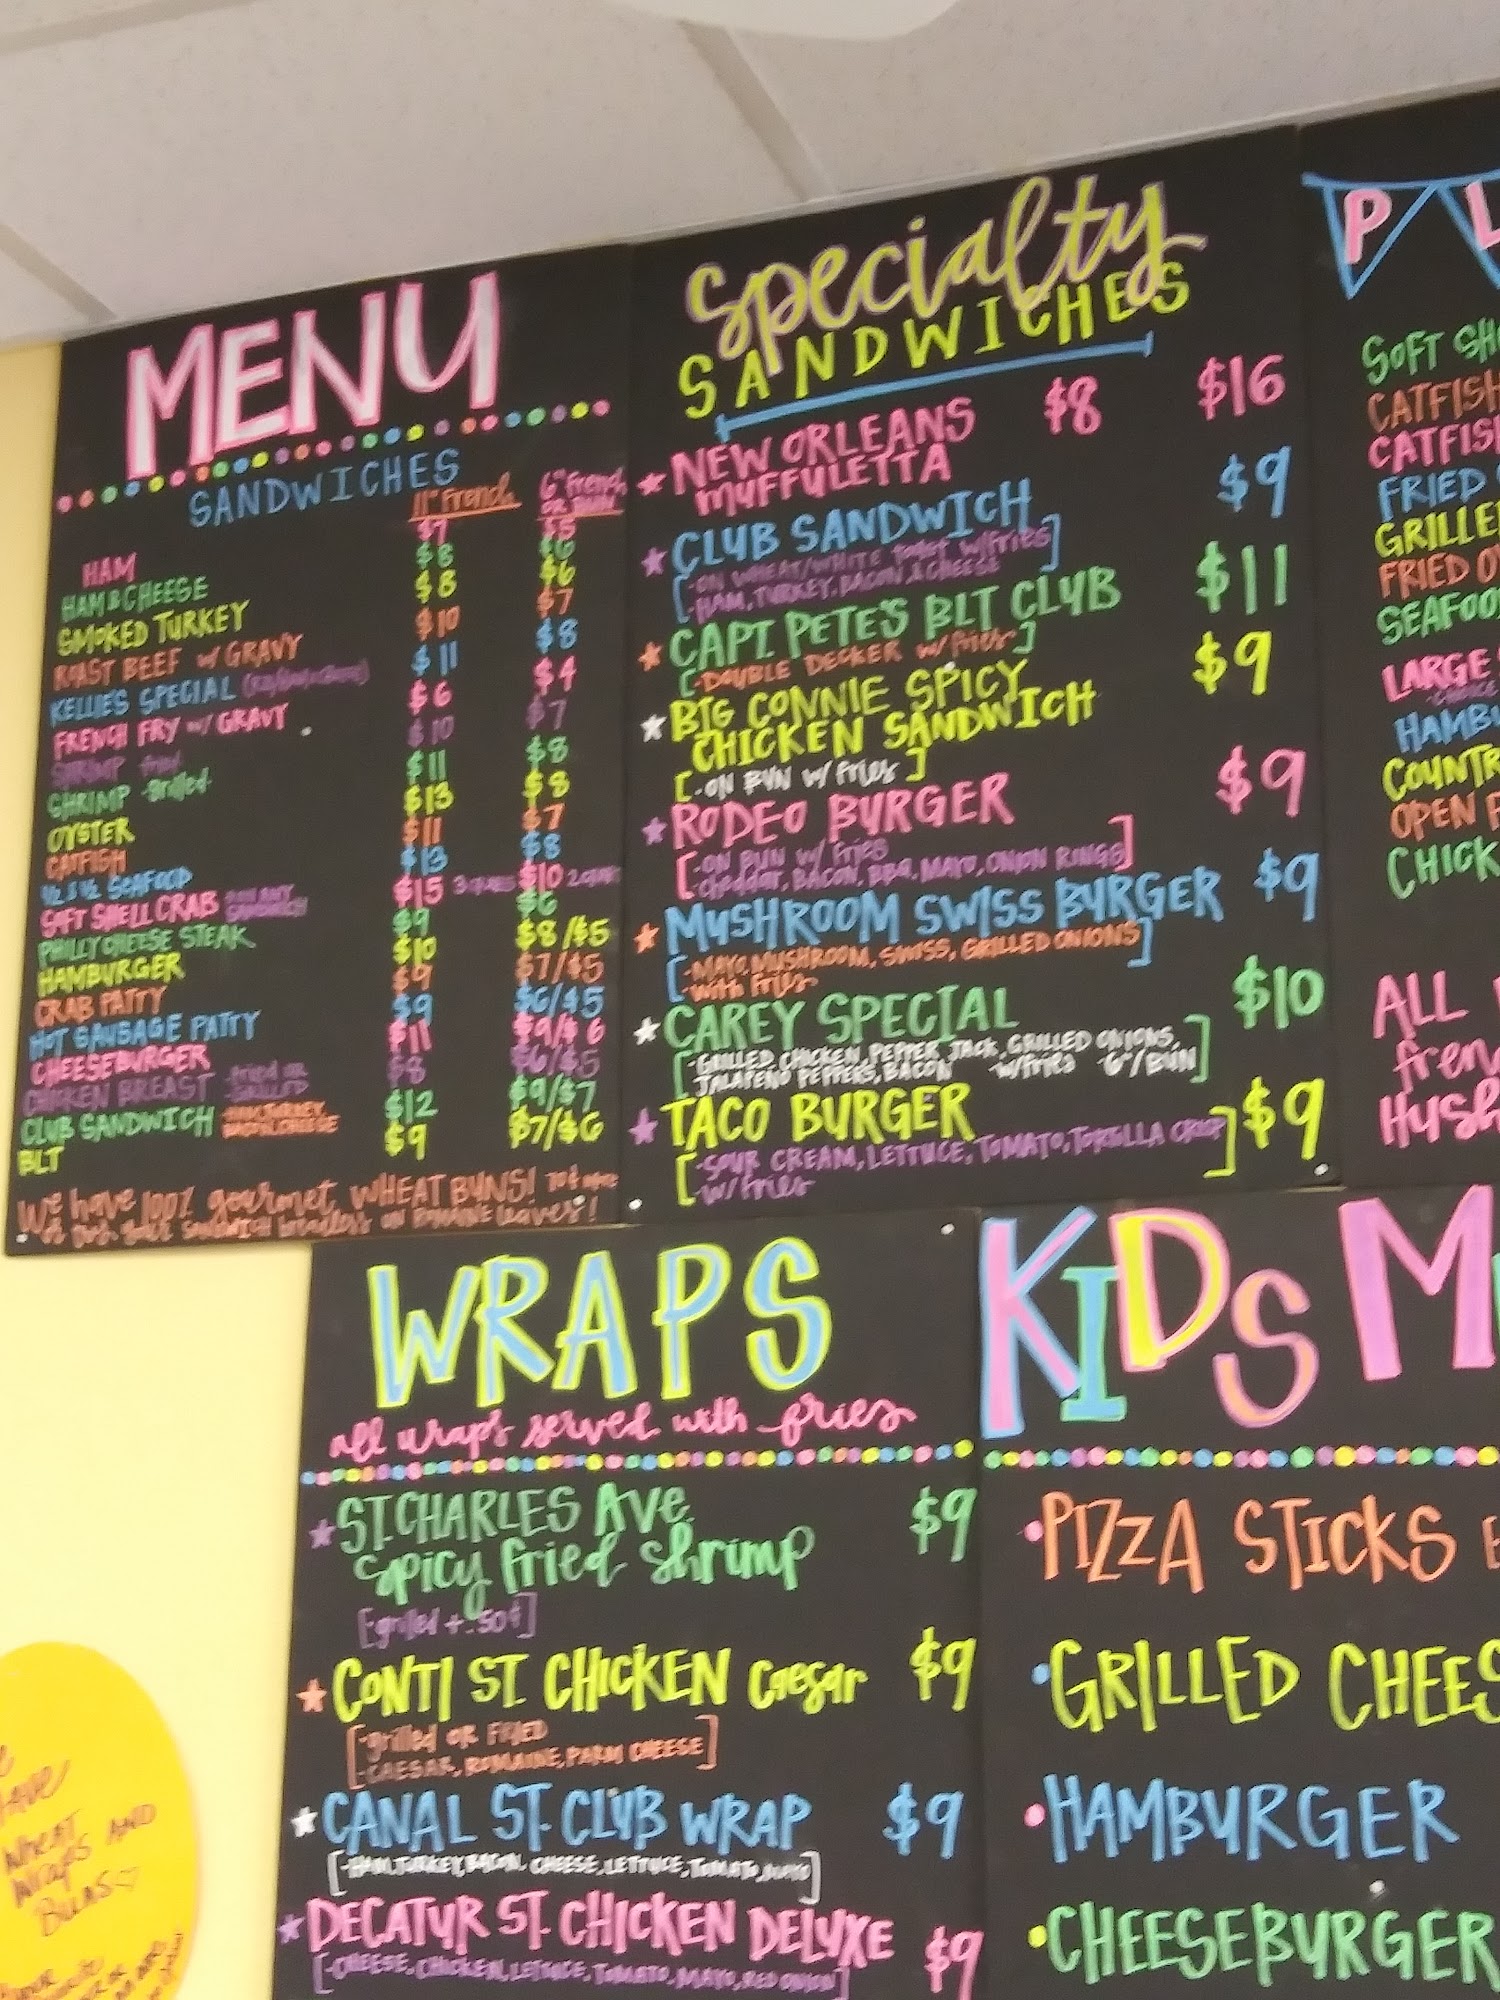 MENU
SANDWICHES
11" French
6" French
HAM $7 $5
HAM & CHEESE $8 $6
SMOKED TURKEY $8 $6
ROAST BEEF w/ GRAVY $10 $7
KELLIE'S SPECIAL $11 $8
FRENCH FRY w/ GRAVY $6 $4
SHRIMP fried $10 $7
SHRIMP -Grilled- $11 $8
OYSTER $13 $8
CATFISH $11 $7
½ & ½ SEAFOOD $13 $8
SOFT SHELL CRAB $15 $10
PHILLY CHEESE STEAK $9 $6
HAMBURGER $10 $8/$5
CRAB PATTY $9 $7/$5
HOT SAUSAGE PATTY $9 $6/$5
CHEESEBURGER $11 $9/$6
CHICKEN BREAST -fried OR GRILLED $8 $6/$5
CLUB SANDWICH $12 $9/$7
BLT $9 $7/$6
We have 100% gourmet WHEAT BUNS!
SANDWICH breadless ON ROMAINE leaves!
Specialty
SANDWICHES
NEW ORLEANS $8 $16
MUFFULETTA
CLUB SANDWICH $9
-ON WHEAT/WHITE TOAST w/fries
-HAM, TURKEY, BACON, & CHEESE
CAPT. PETE'S BLT CLUB $11
[-DOUBLE DECKER w/fries-]
BIG CONNIE SPICY $9
CHICKEN SANDWICH
[-ON BUN w/ fries]
RODEO BURGER $9
-ON BUN w/ fries
-cheddar, BACON, BBQ, MAYO, ONION RINGS
MUSHROOM SWISS BURGER $9
-MAYO, MUSHROOM, SWISS, GRILLED ONIONS
-with fries-
CAREY SPECIAL $10
-GRILLED CHICKEN, PEPPER JACK, GRILLED ONIONS,
JALAPEÑO PEPPERS, BACON w/fries 6"/BUN
TACO BURGER $9
-SOUR CREAM, LETTUCE, TOMATO, TORTILLA CRISP
-w/fries
P L
SOFT SH
CATFISH
CATFIS
FRIED
GRILLE
FRIED OY
SEAFOO
LARGE
HAMBU
COUNTR
OPEN F
CHICK
ALL
fren
Hush
WRAPS
all wraps served with fries
ST. CHARLES AVE. $9
spicy fried shrimp
[grilled +.50¢]
CONTI ST. CHICKEN Caesar $9
-grilled OR FRIED
-CAESAR, ROMAINE, PARM CHEESE
CANAL ST. CLUB WRAP $9
[-HAM, TURKEY, BACON, CHEESE, LETTUCE, TOMATO, MAYO]
DECATUR ST. CHICKEN DELUXE $9
[-CHEESE, CHICKEN, LETTUCE, TOMATO, MAYO, RED ONION]
KIDS M
PIZZA STICKS
GRILLED CHEES
HAMBURGER
CHEESEBURGER
WHEAT
WRAPS AND
BUNS